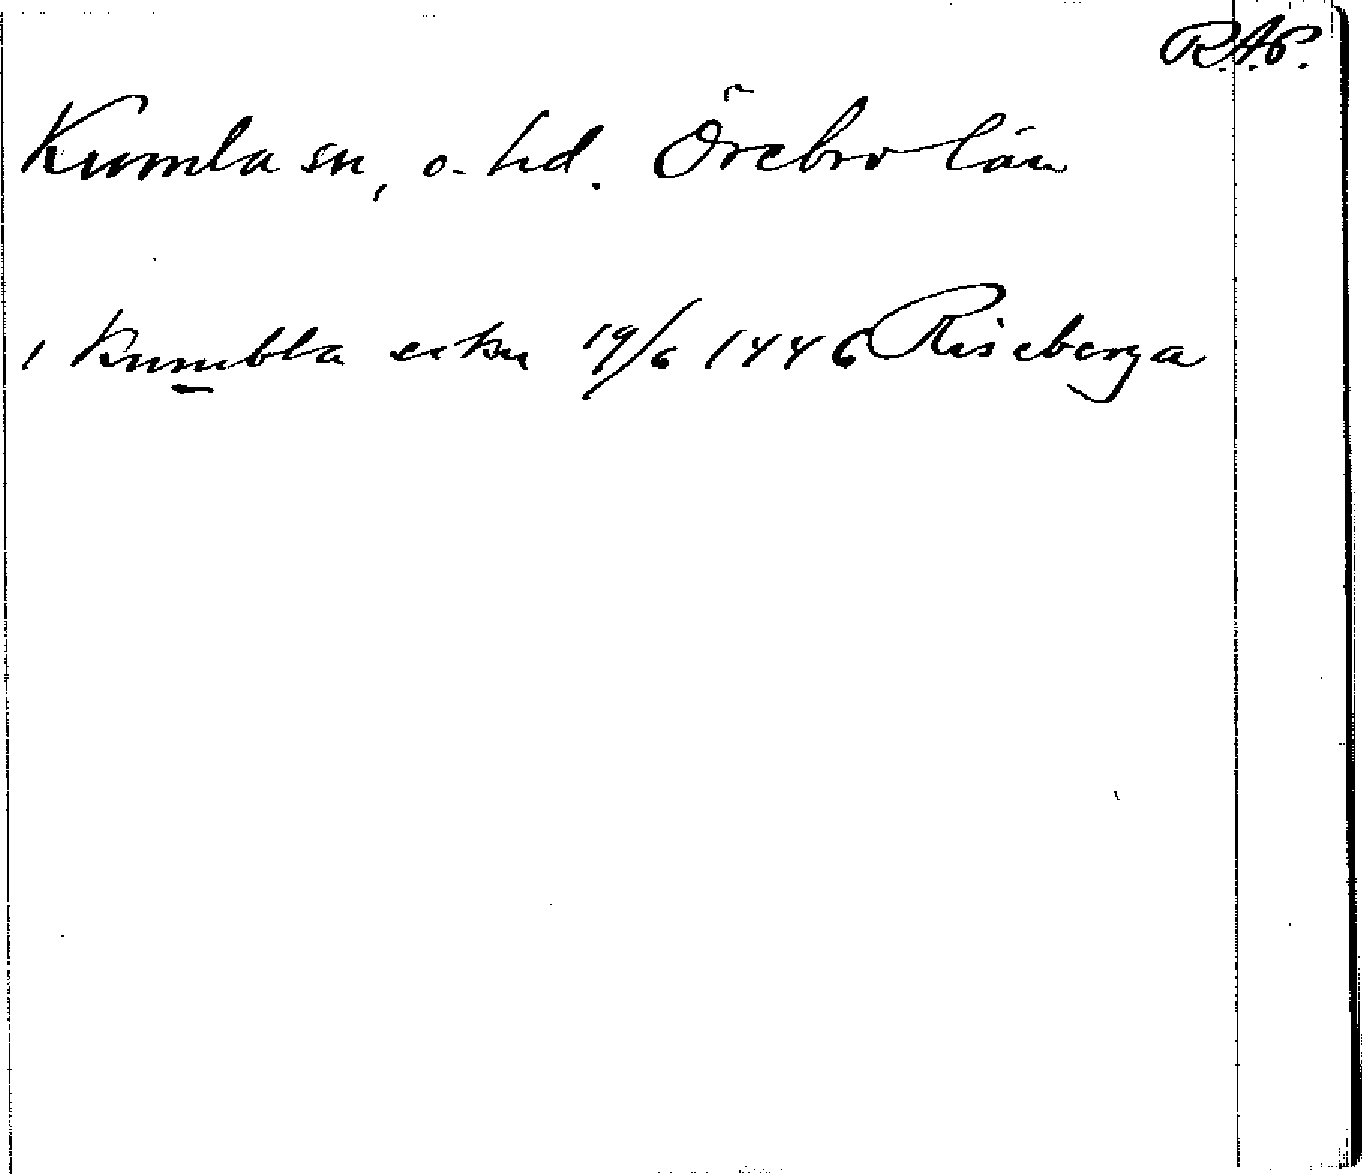 R.A.P.
Kumla sn, o. hd. Örebro län
i Kumbla sokn 19/6 1446 Riseberga